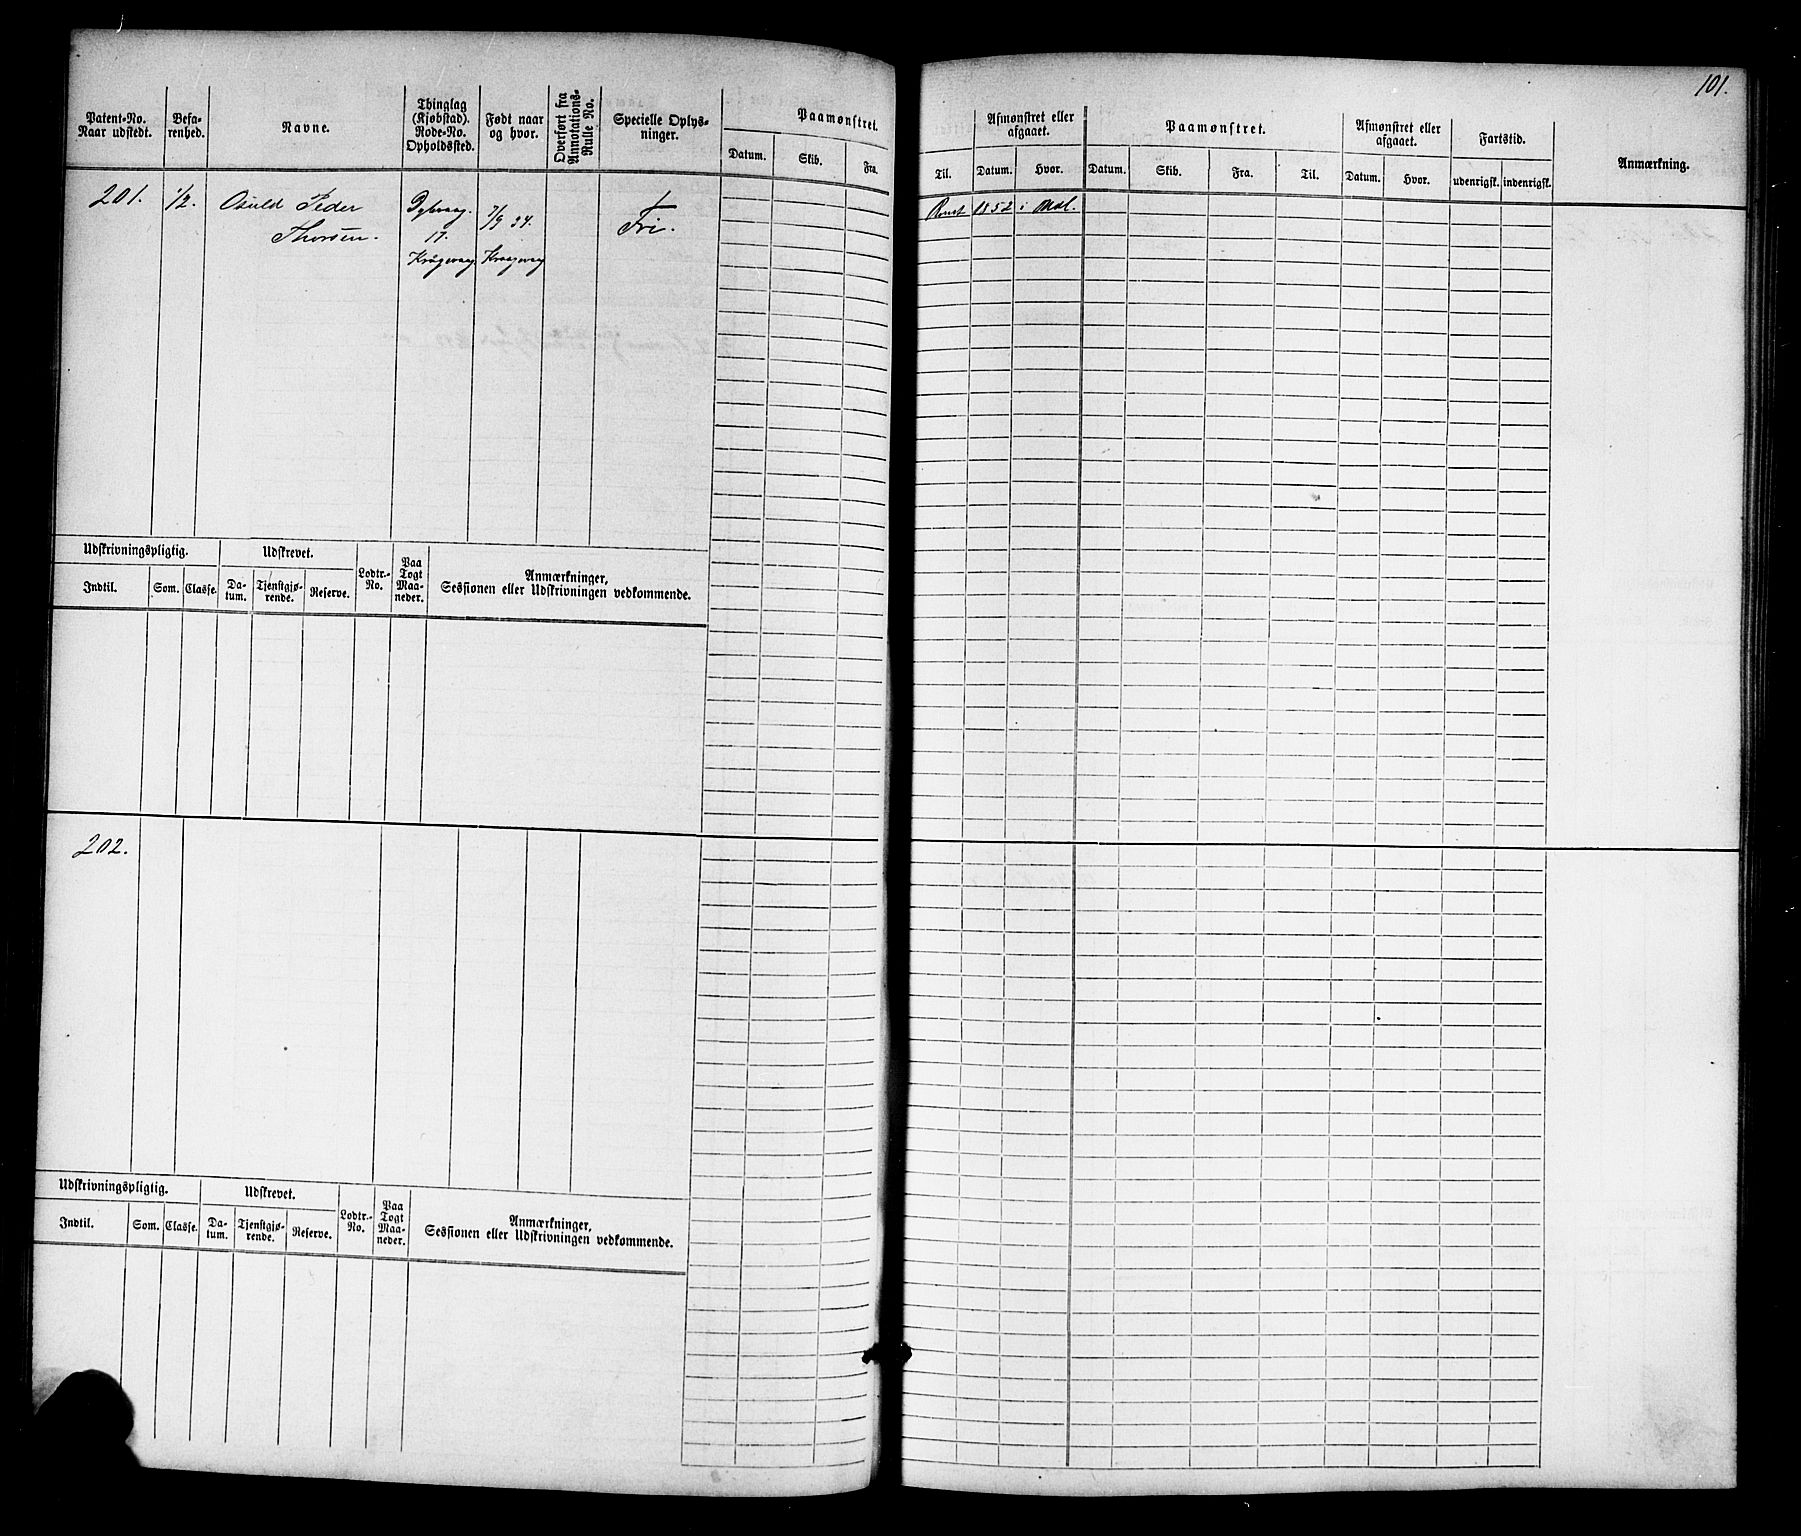 101.
Patent-No.
Naar udstedt.
Befa-
renhed.
Navne.
Thinglag
(Kjøbstad).
Rode-No.
Opholdssted.
Født naar
og hvor.
Overført fra
Annotations-
Rulle No.
Specielle Oplys-
ninger.
Paamønstret.
Datum.
Skib.
Fra.
Til.
Afmønstret eller
afgaaet.
Datum.
Hvor.
Paamønstret.
Datum.
Skib.
Fra.
Til.
Afmønstret eller
afgaaet.
Datum.
Hvor.
Fartstid.
udenrigsk.
indenrigsk.
Anmærkning.
201.
1/2.
Osuld Peder
Thorsen.
Dybvaag.
17.
Krogevaag.
7/9 34.
Kraagevaag
Fri.
1852 i
Udskrivningspligtig.
Indtil.
Som.
Classe.
Udskrevet.
Da-
tum.
Tjenstgjø-
rende.
Reserve.
Lodtr.-
No.
Paa
Togt
Maa-
neder.
Anmærkninger,
Sessionen eller Udskrivningen vedkommende.
202.
Udskrivningspligtig.
Indtil.
Som.
Classe.
Udskrevet.
Da-
tum.
Tjenstgjø-
rende.
Reserve.
Lodtr.-
No.
Paa
Togt
Maa-
neder.
Anmærkninger,
Sessionen eller Udskrivningen vedkommende.